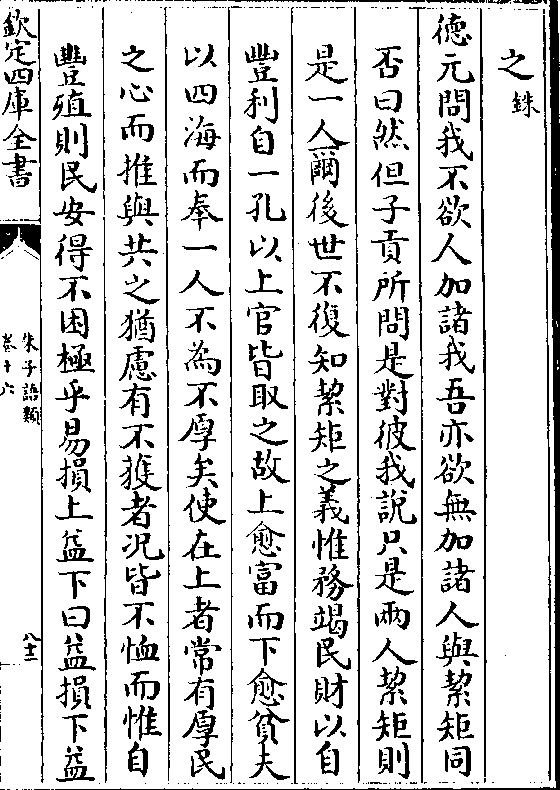 之銖
德元問我不欲人加諸我吾亦欲無加諸人與絜矩同
否曰然但子貢所問是對彼我說只是兩人絜矩則
是一人爾後世不復知絜矩之義惟務竭民財以自
豐利自一孔以上官皆取之故上愈富而下愈貧夫
以四海而奉一人不為不厚矣使在上者常有厚民
之心而推與共之猶慮有不獲者况皆不恤而惟自
豐殖則民安得不困極乎易損上益下曰益損下益
欽定四庫全書
朱子語類
卷十六
八十三